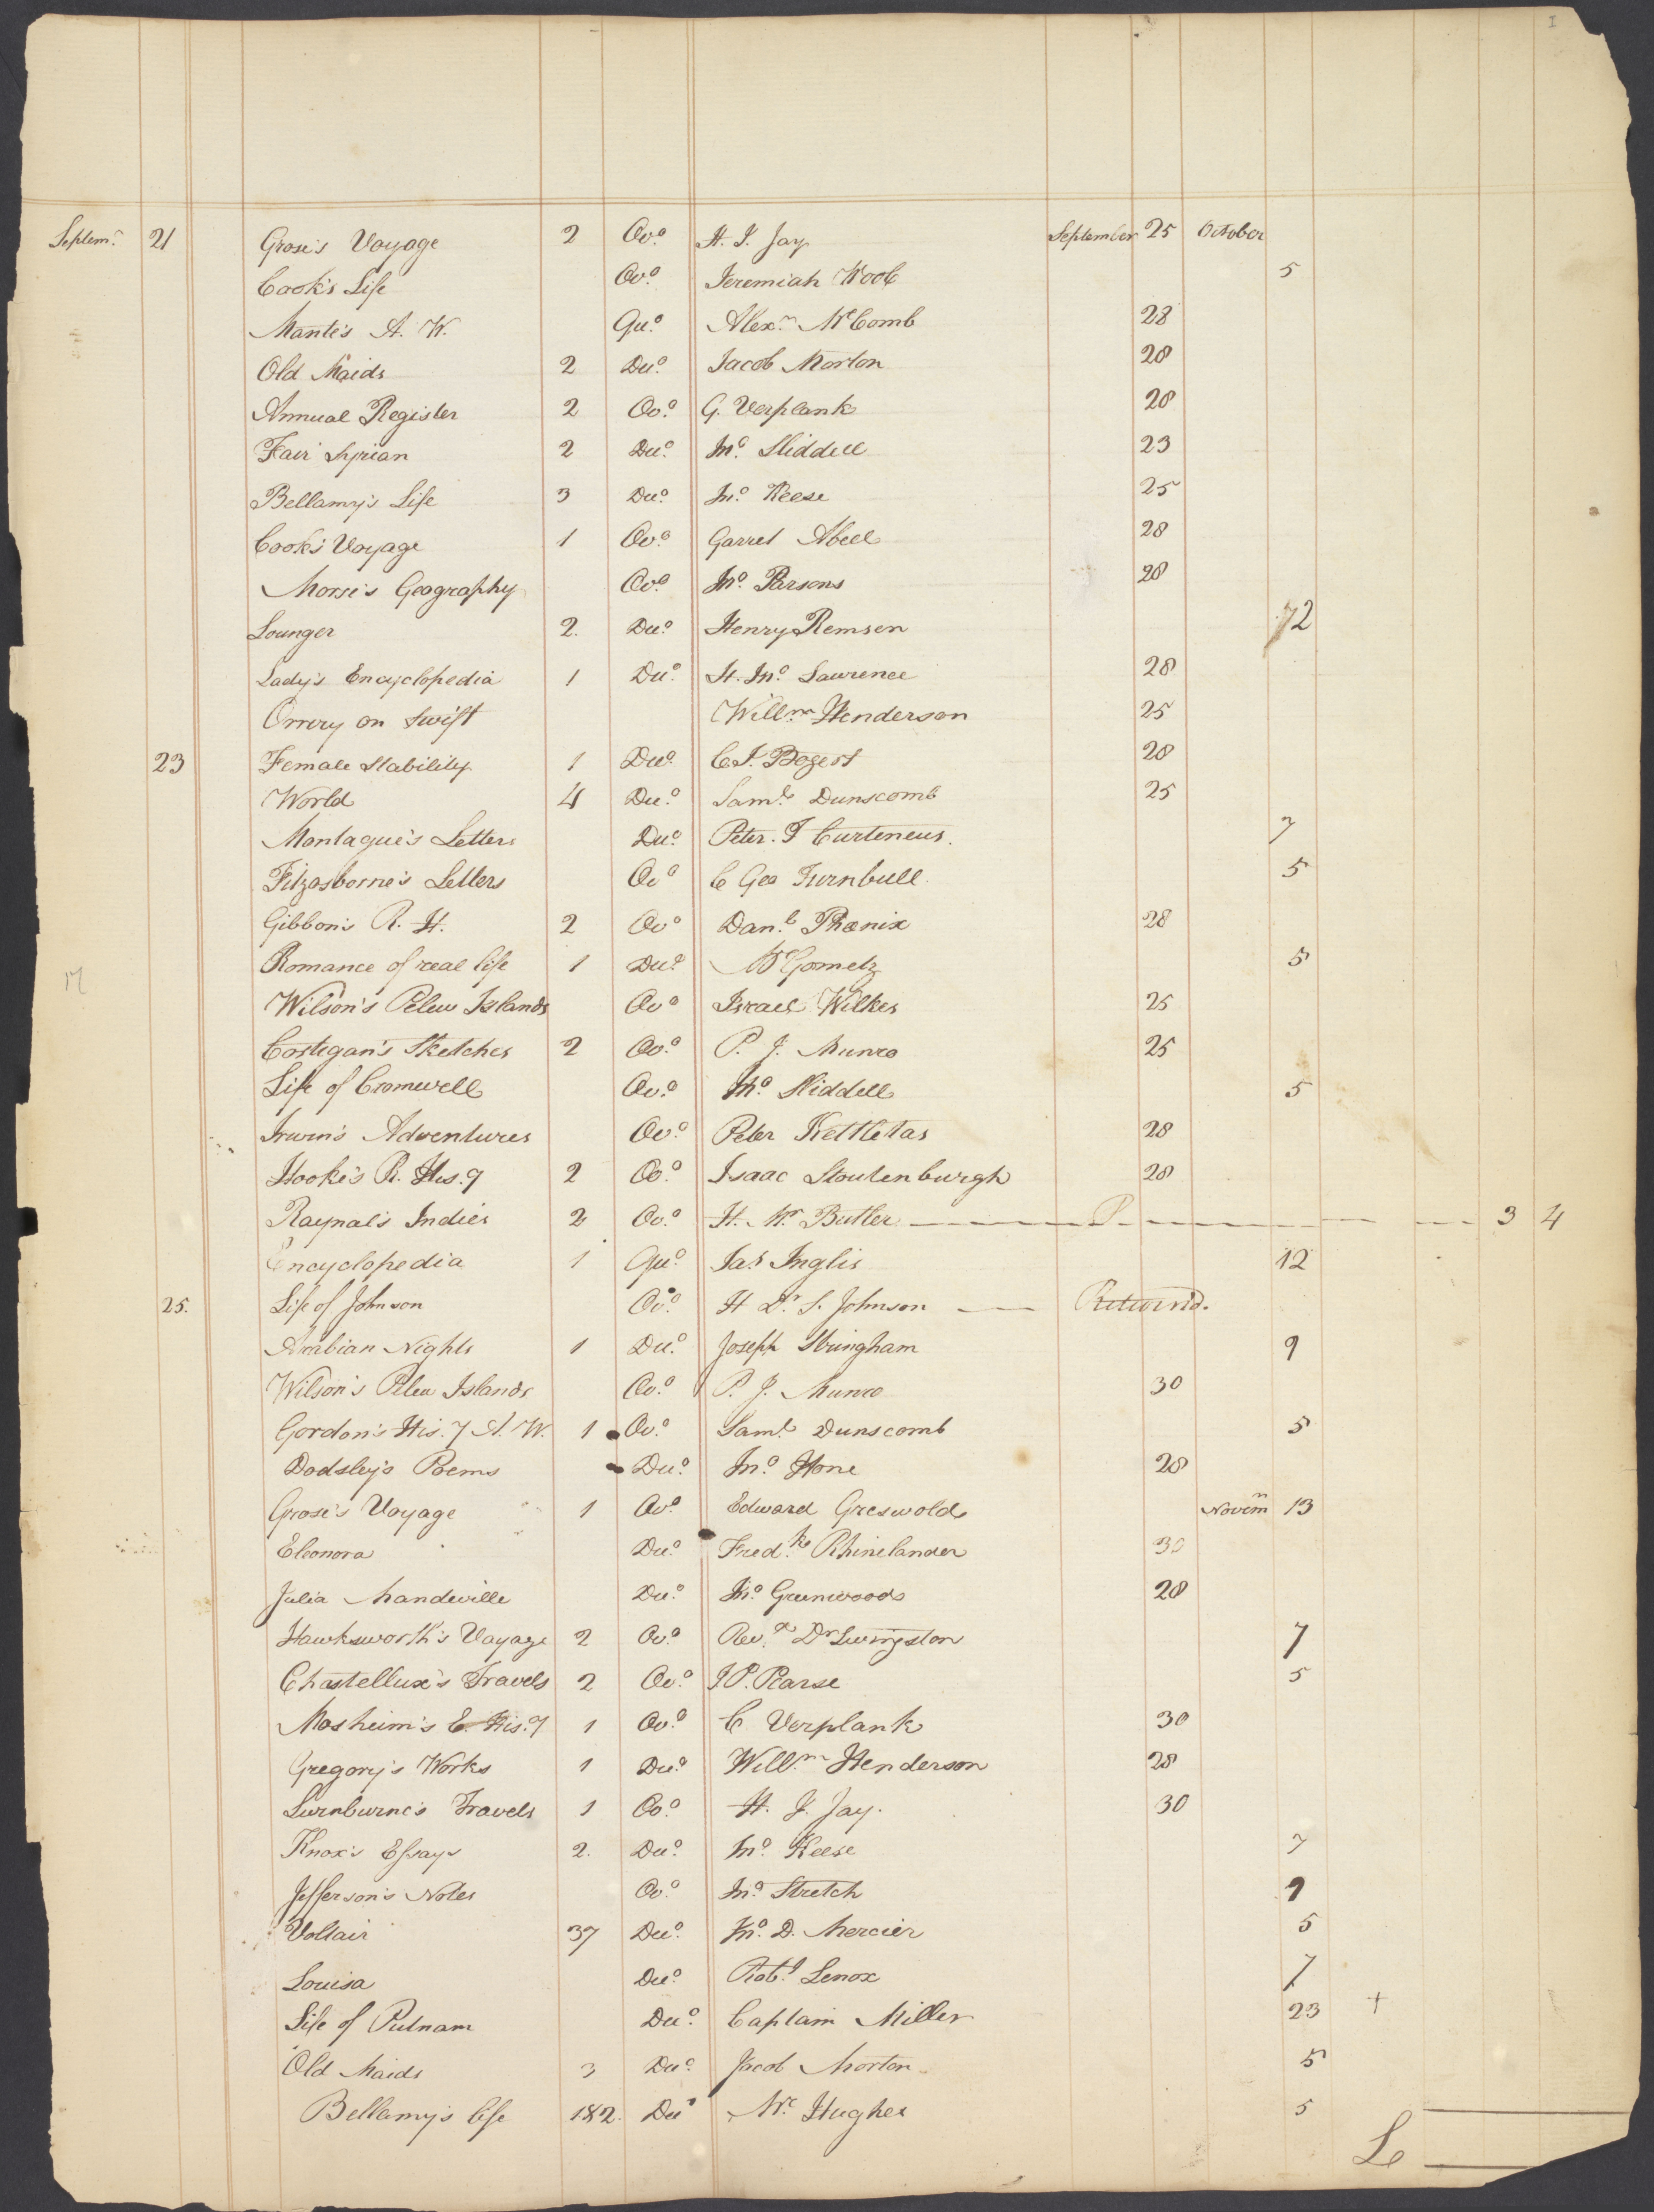 I
Septemr. 21 Grose's Voyage 2 Ovo. H. J. Jay September 25 October
Cook's Life Ovo. Jeremiah Wool 5
Mante's A. W. Quo. Alexr. McComb 28
Old Maids 2 Duo. Jacob Morton 28
Annual Register 2 Ovo. G. Verplank 28
Fair Syrian 2 Duo. Jno. Sliddell 23
Bellamy's Life 3 Duo. Jno. Keese 25
Cook's Voyage 1 Ovo. Garret Abeel 28
Morse's Geography Ovo. Jno. Parsons 28
Lounger 2. Duo. Henry Remsen 12
Lady's Encyclopedia 1 Duo. H. Jno. Lawrence 28
Orrery on Swift Willm Henderson 25
23 Female Stability 1 Duo. C. J. Bogert 28
World 4 Duo. Saml. Dunscomb 25
Montague's Letters Duo. Peter. T Curteneus. 7
Fitzosborne's Letters Ovo C Geo Turnbull 5
Gibbon's R. H. 2 Ovo Danl. Phœnix 28
Romance of real life 1 Duo. Mr Gometz 5
Wilson's Pelew Islands Ovo Israel Wilkes 25
Costigan's Sketches 2 Ovo. P. J. Munro 25
Life of Cromwell Ovo. Jno Sliddell 5
Irwin's Adventures Ovo. Peter Kettletas 28
Hooke's R. His.y 2 Ovo. Isaac Stoutenburgh 28
Raynal's Indies 2 Ovo. H. Mr Butler P 3 4
Encyclopedia 1 Quo. Jas Inglis 12
25. Life of Johnson Ovo. H Dr. S. Johnson Returnd.
Arabian Nights 1 Duo. Joseph Stringham 9
Wilson's Pelew Islands Ovo. P. J. Munro 30
Gordon's His.y A. W. 1 Ovo. Saml. Dunscomb 5
Dodsley's Poems Duo. Jno. Hone 28
Grose's Voyage 1 Ovo Edward Greswold Novem 13
Eleonora Duo. Fred.k Rhinelander 30
Julia Mandeville Duo. Jno. Greenwoods 28
Hawksworth's Voyage 2 Ovo. Revd. Dr Livingston 7
Chastellux's Travels 2 Ovo. J P. Pearse 5
Mosheim's E. His.y 1 Ovo. C Verplank 30
Gregory's Works 1 Duo. Willm Henderson 28
Swinburne's Travels 1 Ovo. H. J. Jay. 30
Knox's Essays 2. Duo. Jno. Keese 7
Jefferson's Notes Ovo. Jno. Stretch 9
Voltair 37 Duo. Jno. D. Mercier 5
Louisa Duo. Robt. Lenox 7
Life of Putnam Duo. Captain Miller 23 +
Old Maids 3 Duo. Jacob Morton 5
Bellamy's life 1&2. Duo Mr. Hughes 5
£